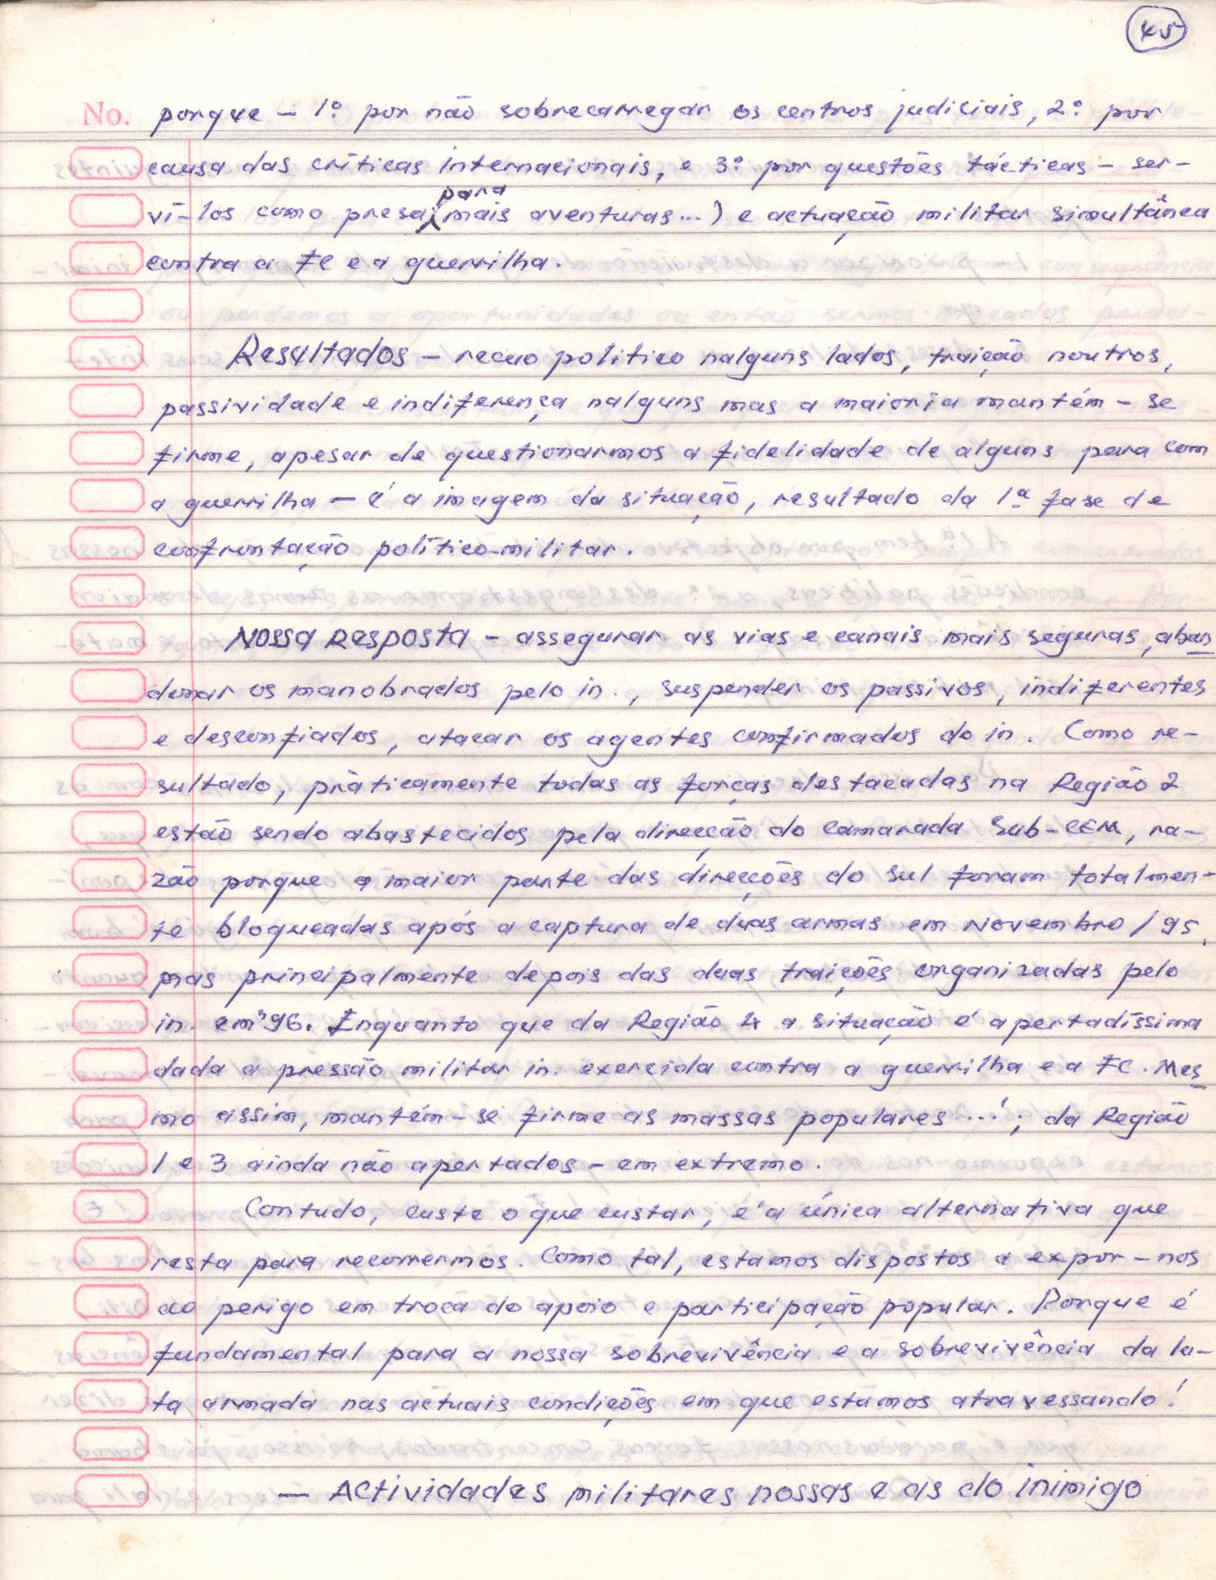 45
No. porque – 1º por não sobrecarregar os centros judiciais, 2º por
causa das críticas internacionais, e 3º por questões tácticas – ser-
vi-los como presa para mais aventuras...) e actuação militar simultânea
contra a FC e a guerrilha.
Resultados – recuo politico nalguns lados, traição noutros,
passividade e indiferença nalguns mas a maioria mantém-se
firme, apesar de questionarmos a fidelidade de alguns para com
a guerrilha – é a imagem da situação, resultado da 1ª fase de
confrontação político-militar.
Nossa Resposta – assegurar as vias e canais mais seguras, aban
donar os manobrados pelo in., suspender os passivos, indiferentes
e desconfiados, atacar os agentes confirmados do in. Como re-
sultado, pràticamente todas as forças destacadas na Região 2
estão sendo abastecidos pela direcção do camarada Sub-CEM, ra-
zão porque a maior parte das direcções do sul foram totalmen-
te bloqueadas após a captura de duas armas em Novembro/95,
mas principalmente depois das duas traições organizadas pelo
in. em 96. Enquanto que da Região 4 a situação é apertadíssima
dada a pressão militar in. exercida contra a guerrilha e a FC. Mes
mo assim, mantém-se firme as massas populares ...!; da Região
1 e 3 ainda não apertados – em extremo.
Contudo, custe o que custar, é a única alternativa que
resta para recorrermos. Como tal, estamos dispostos a expor-nos
ao perigo em troca do apoio e participação popular. Porque é
fundamental para a nossa sobrevivência e a sobrevivência da lu-
ta armada nas actuais condições em que estamos atravessando!
— Actividades militares nossas e as do inimigo